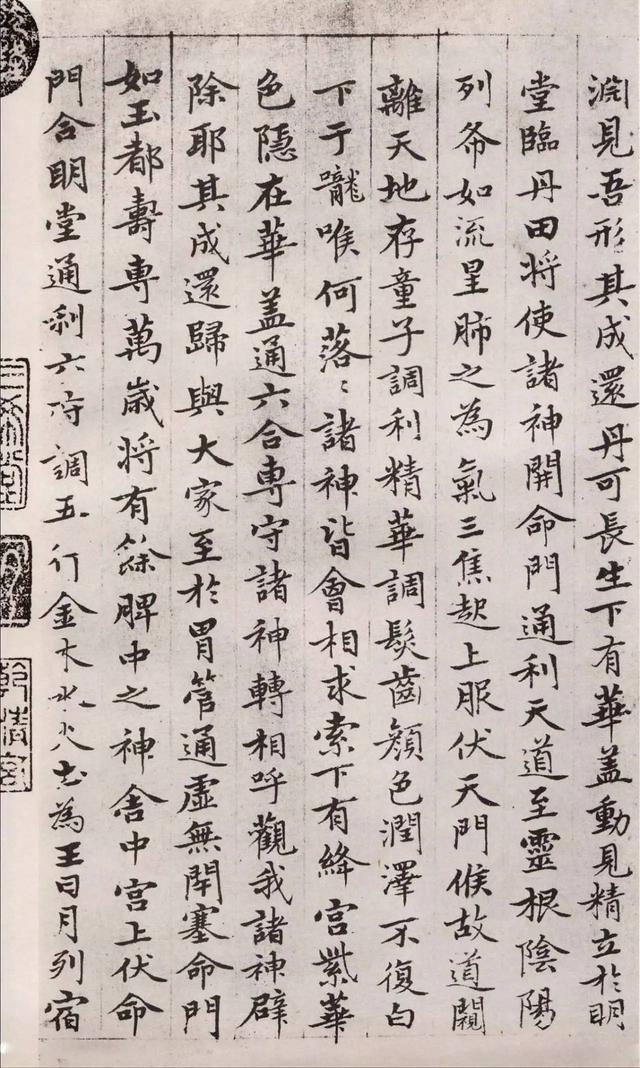 淵見吾形其成還丹可長生下有華盖動見精立於明
堂臨丹田将使諸神開命門通利天道至靈根陰陽
列布如流星肺之為氣三焦起上服伏天門候故道闚
離天地存童子調利精華調髮齒顔色潤澤不復白
下于嚨喉何落〻諸神皆會相求索下有絳宫紫華
色隱在華盖通六合専守諸神轉相呼觀我諸神辟
除耶其成還歸與大家至於胃管通虚無閉塞命門
如玉都壽専萬歳将有餘脾中之神舎中宫上伏命
門合明堂通利六府調五行金木水火土為王日月列宿
三希堂
乾清宫